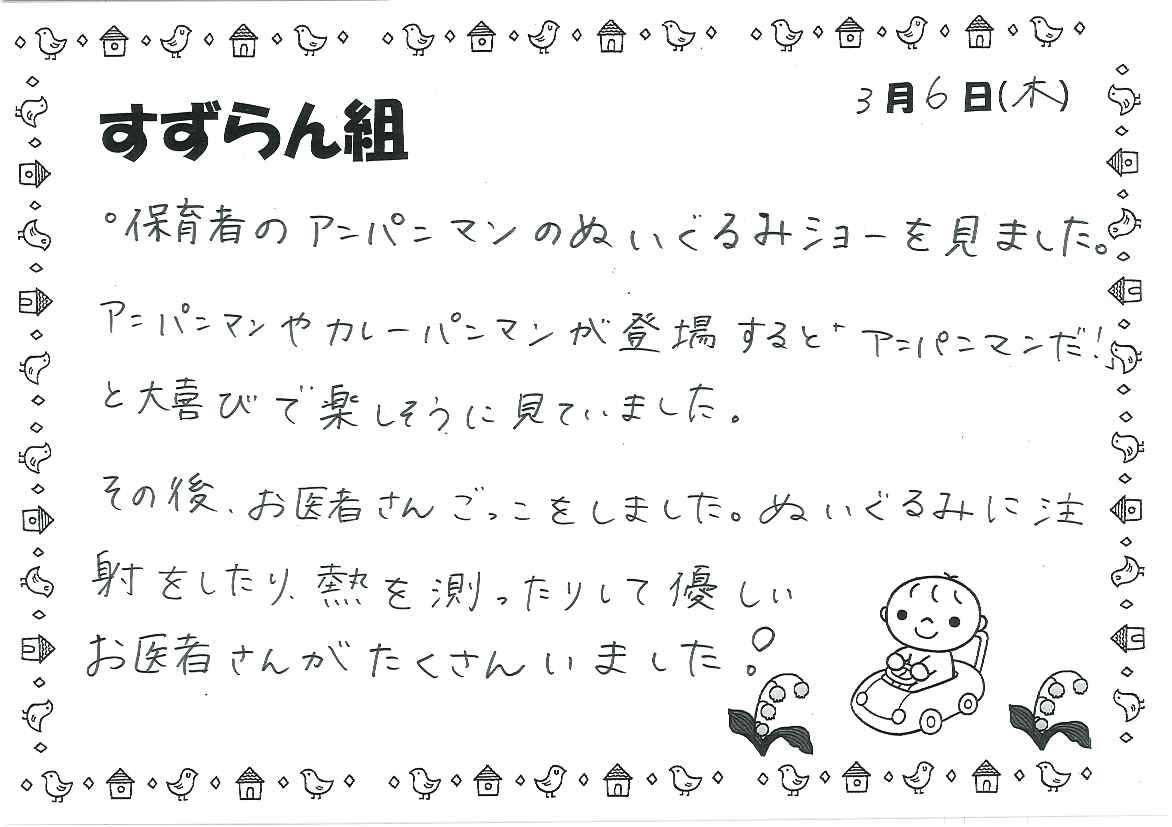 3月6日(木)
すずらん組
°保育者のアンパンマンのぬいぐるみショーを見ました。
アンパンマンやカレーパンマンが登場すると"アンパンマンだ!♪
と大喜びで楽しそうに見ていました。
その後、お医者さんごっこをしました。ぬいぐるみに注
射をしたり、熱を測ったりして優しい
お医者さんがたくさんいました!